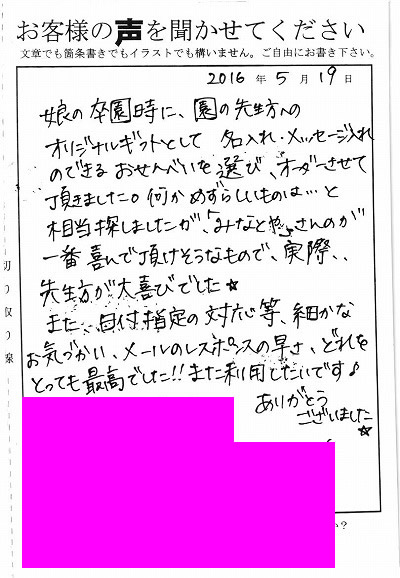 お客様の声を聞かせてください
文章でも箇条書きでもイラストでも構いません。ご自由にお書き下さい。
2016 年 5 月 19 日
娘の卒園時に、園の先生方への
オリジナルギフトとして 名入れ・メッセージ入れ
のできるおせんべいを選び、オーダーさせて
頂きました。何かめずらしいものは…と
相当探しましたが、「みなとや」さんのが
一番喜んで頂けそうなもので、実際、、
先生方が大喜びでした☆
また、日付指定の対応等、細かな
お気づかい、メールのレスポンスの早さ、どれを
とっても最高でした!!また利用したいです♪
ありがとう
ございました
☆
切り取り線
か?